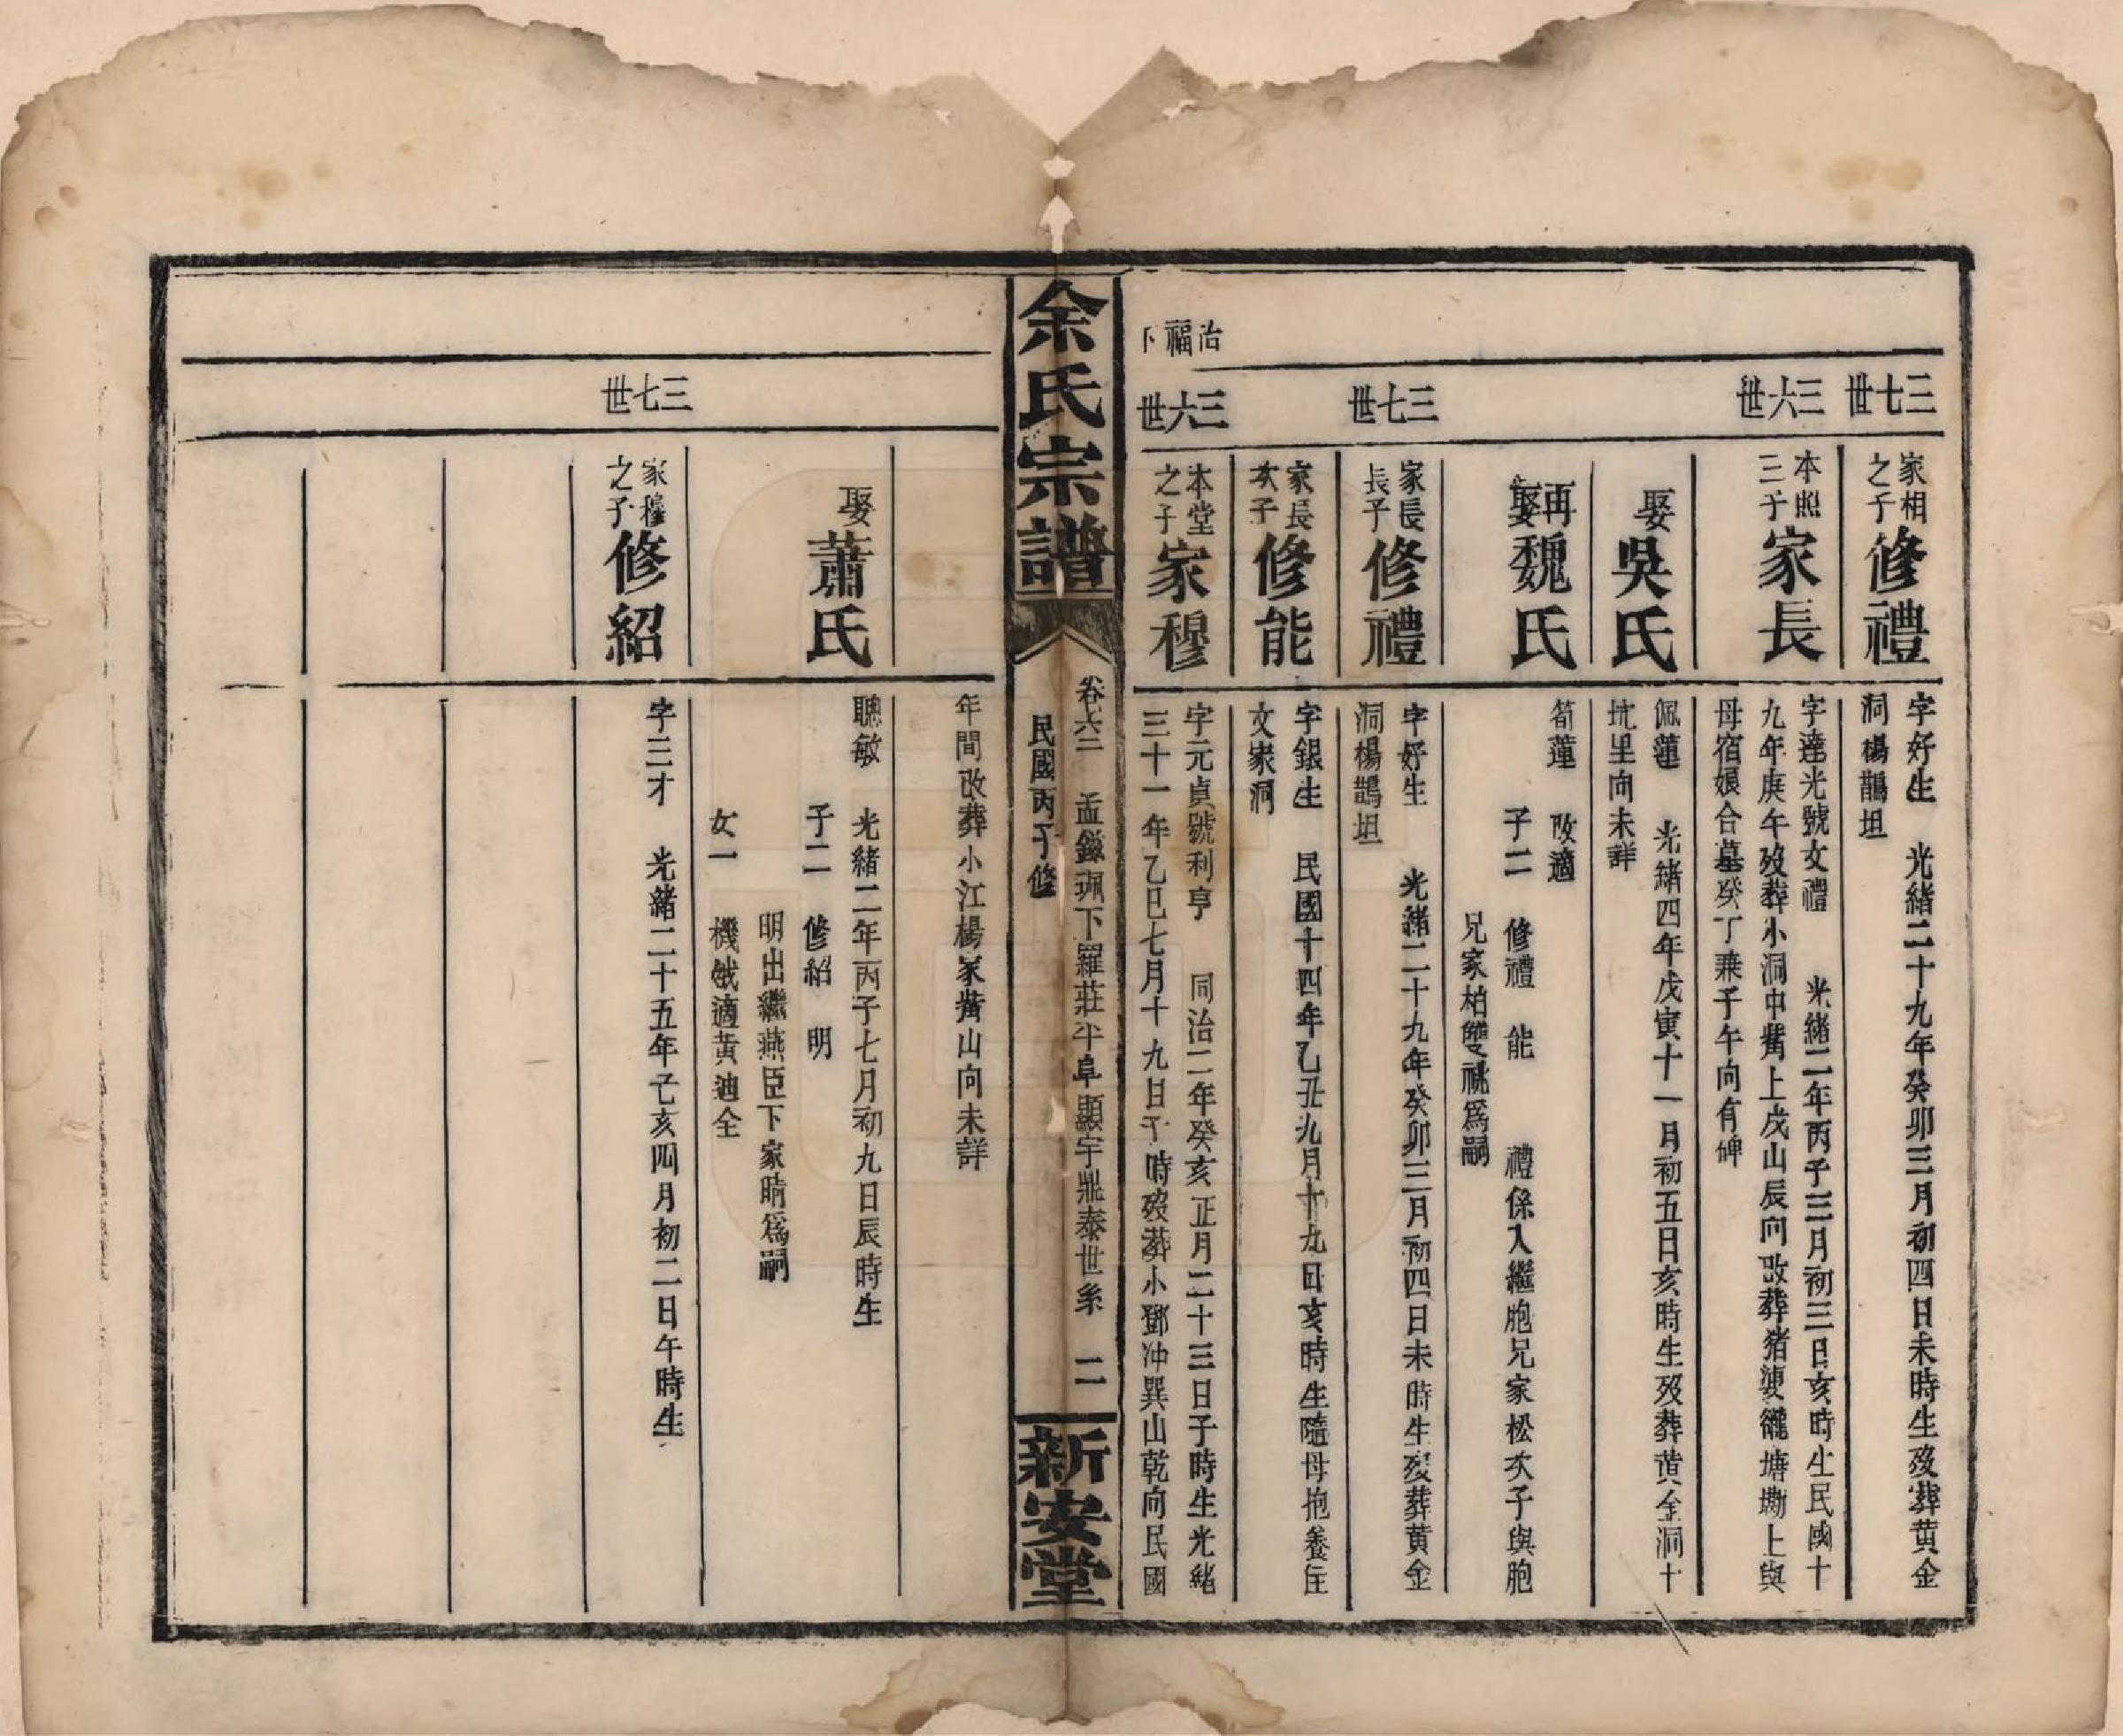 三七世
家相之子
修禮
字好生 光緒二十九年癸卯三月初四日未時生歿葬黃金
洞楊鵲坦
三六世
本照三子
家長
字達光號文禮 光緒二年丙子三月初三日亥時生民國十
九年庚午歿葬小洞中觜上戌山辰向改葬猪塘塝上與
母宿娘合墓癸丁兼子午向有碑
娶
吳氏
佩蓮 光緒四年戊寅十一月初五日亥時生歿葬黃金洞十
坑里向未詳
再娶
魏氏
筍蓮 改適
子二 修禮 能 禮係入繼胞兄家松次子與胞
兄家柏雙祧爲嗣
三七世
家長長子
修禮
字好生 光緒二十九年癸卯三月初四日未時生歿葬黃金
洞楊鵲坦
家長次子
修能
字銀生 民國十四年乙丑九月十九日亥時生隨母抱養住
文家洞
治福下
三六世
本堂之子
家穆
字元貞號利亨 同治二年癸亥正月二十三日子時生光緒
三十一年乙巳七月十九日子時歿葬小鄧冲巽山乾向民國
余氏宗譜
卷六三 孟鎰珮下羅莊半阜顯宇鼎泰世系 二
民國丙子修
新安堂
年間改葬小江楊家觜山向未詳
娶
蕭氏
聰敏 光緒二年丙子七月初九日辰時生
子二 修紹 明
明出繼燕臣下家晴爲嗣
女一 機娥適黃迪全
三七世
家穆之子
修紹
字三才 光緒二十五年乙亥四月初二日午時生